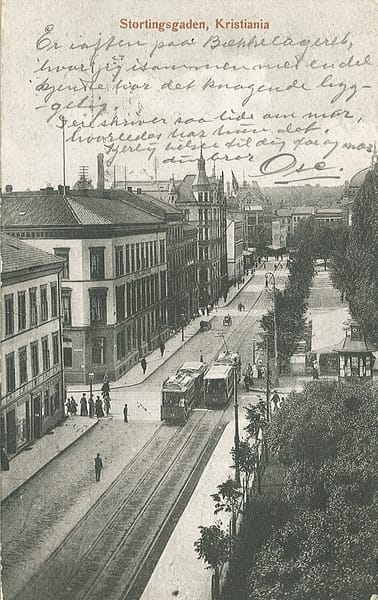 Stortingsgaden, Kristiania
Er i aften paa Bækkelageret,
hvor jeg isammen med en del
kjendte har det knagende hygg-
gelig.
Du skriver saa lide om mor,
hvorledes har hun det.
Hjertlig hilsen til dig far og mor
din bror Ose.